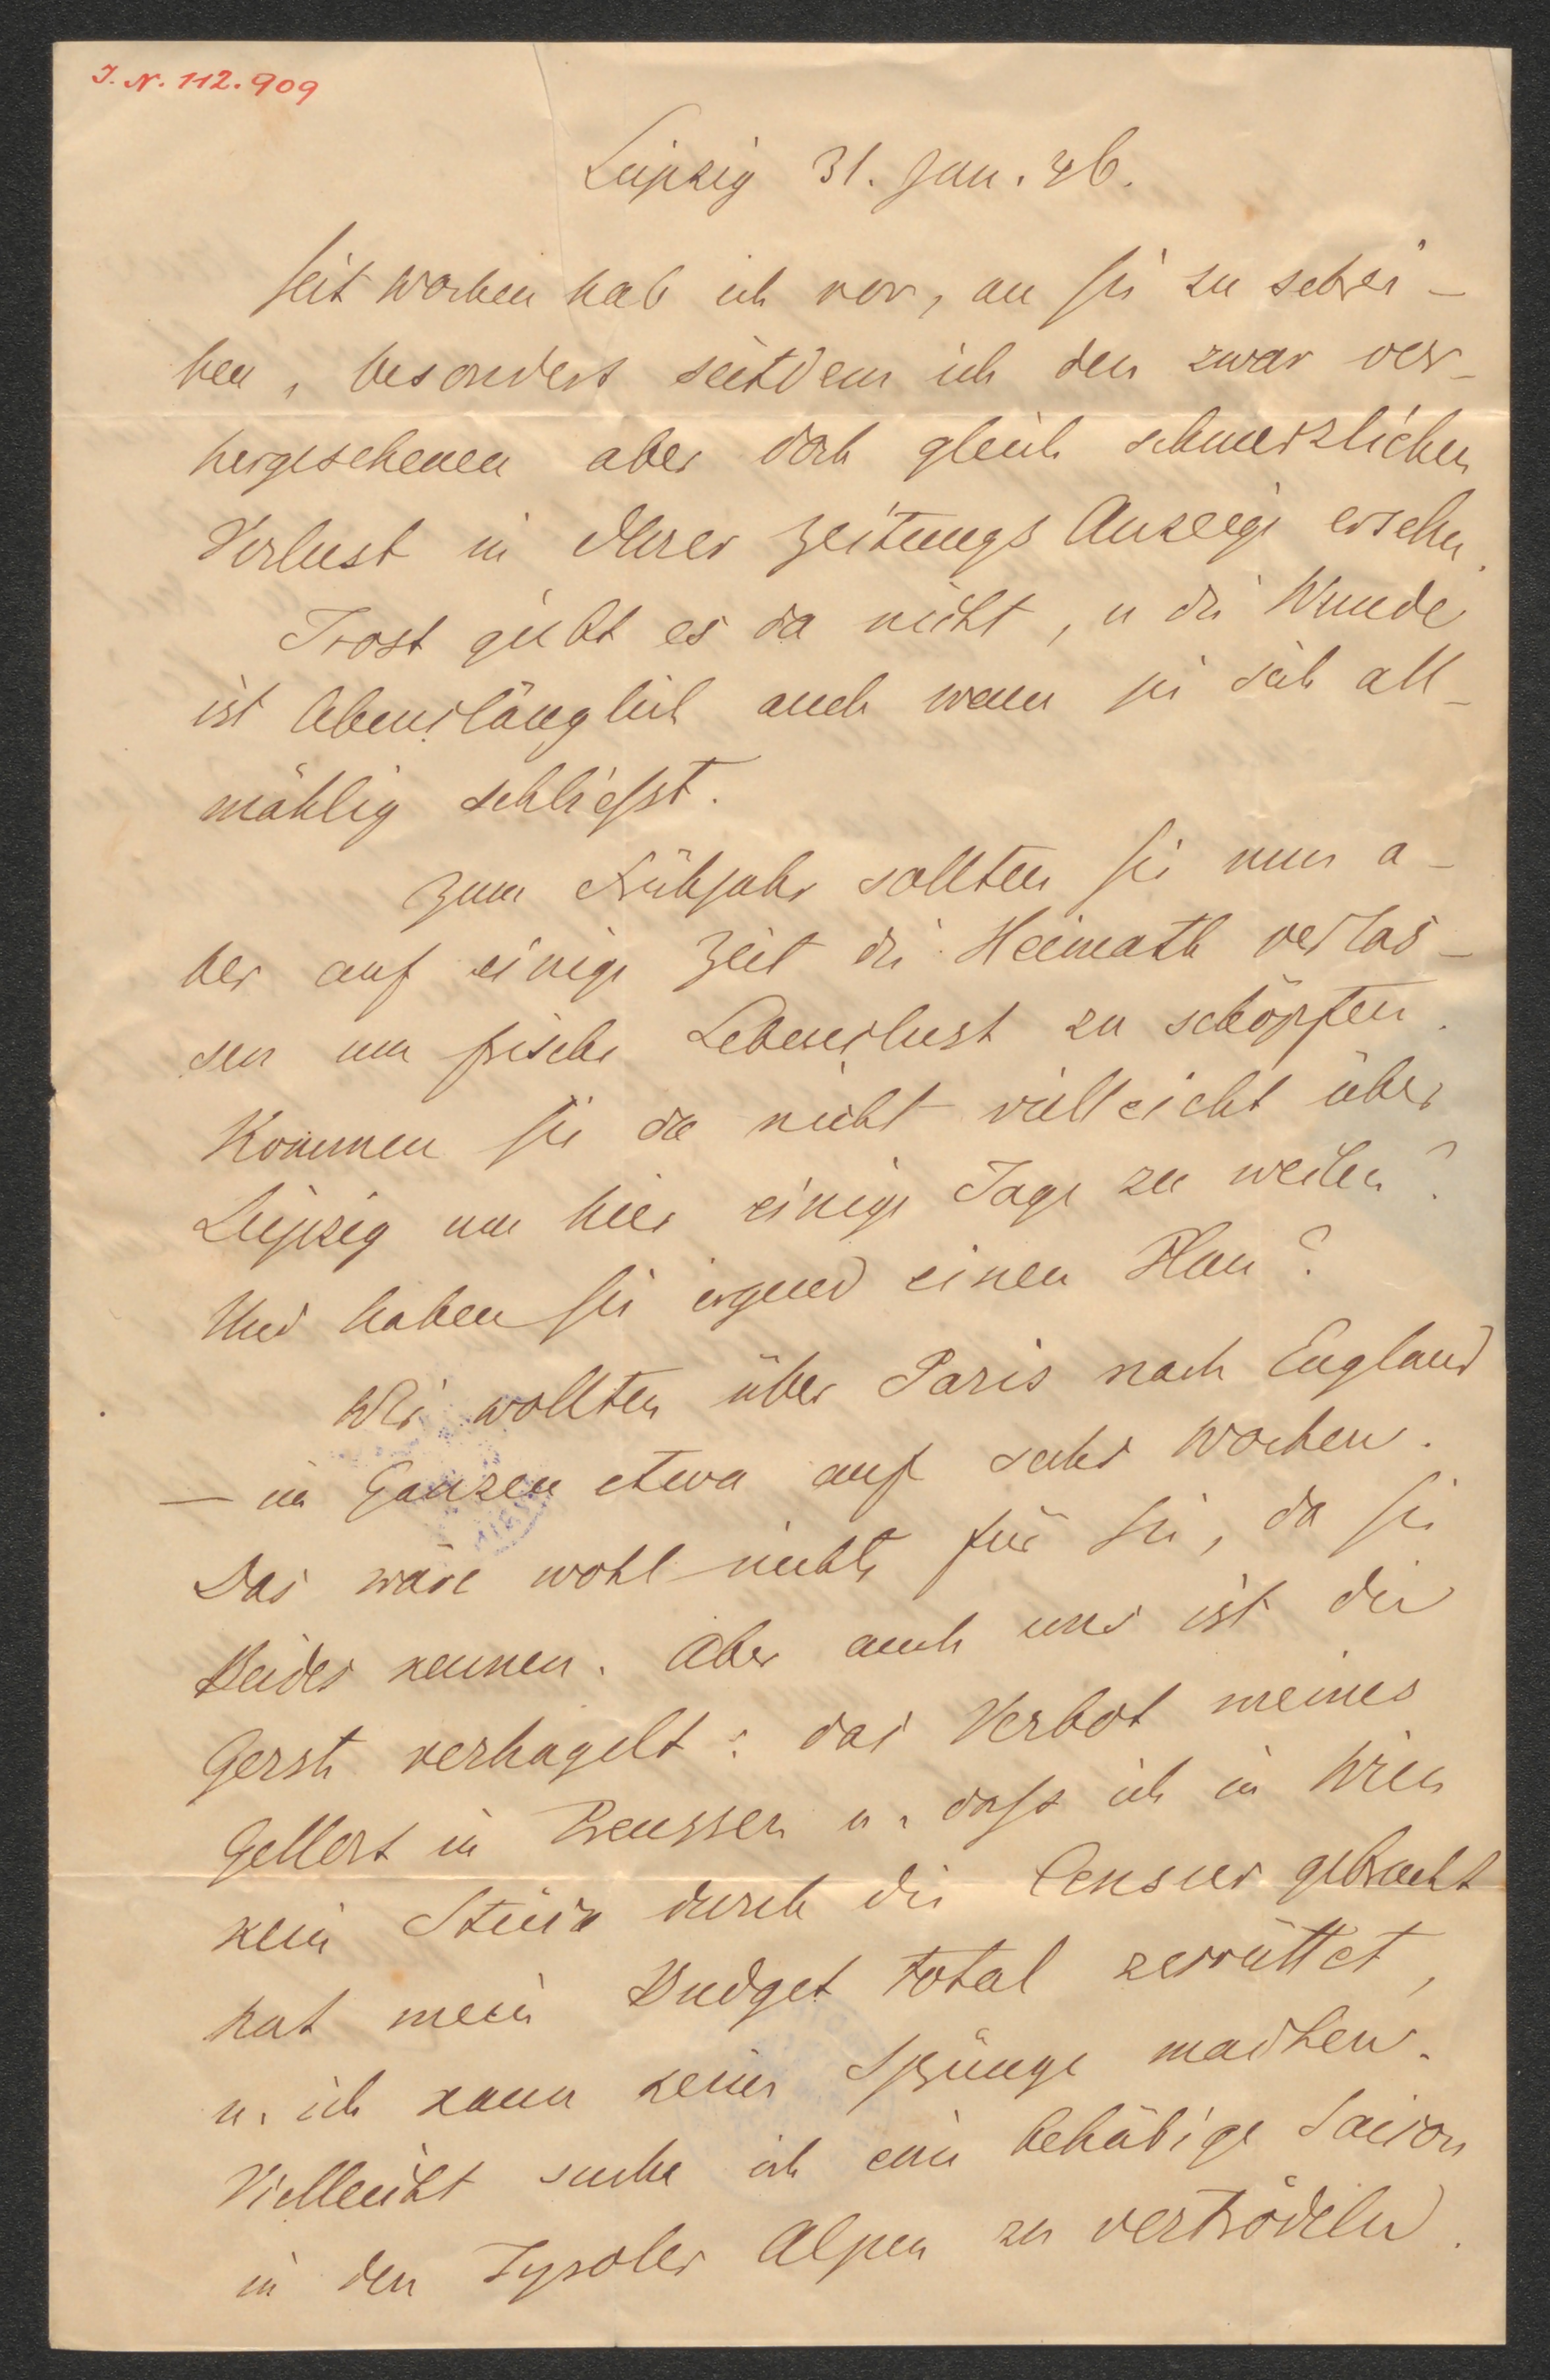 J. N. 112.909
Leipzig 31. Jan. 46.
Seit Wochen hab ich vor, an Sie zu schrei-
ben, besonders seitdem ich den zwar vor-
hergesehenen aber doch gleich schmerzlichen
Verlust in Ihrer Zeitungs Anzeige ersehn.
Trost giebt es da nicht, u die Wunde
ist lebenslänglich auch wenn sie sich all-
mählig schliesst.
Zum Frühjahr sollten Sie nun a-
ber auf einige Zeit die Heimath verlas-
sen um frische Lebenslust zu schöpfen.
Kommen Sie da nicht vielleicht über
Leipzig um hier einige Tage zu weilen?
Und haben Sie irgend einen Plan?
Wir wollten über Paris nach England
– im Ganzen etwa auf sechs Wochen.
Das wäre wohl nichts für Sie, da Sie
Beides kennen. Aber auch uns ist die
Gerste verhagelt: das Verbot meines
Gellert in Preussen u. dass ich in Wien
kein Stück durch die Censur gebracht
hat mein Budget total zerrüttet,
u. ich kann keine Sprünge machen.
Vielleicht suche ich eine behäbige Saison
in den Tyroler Alpen zu vertrödeln.